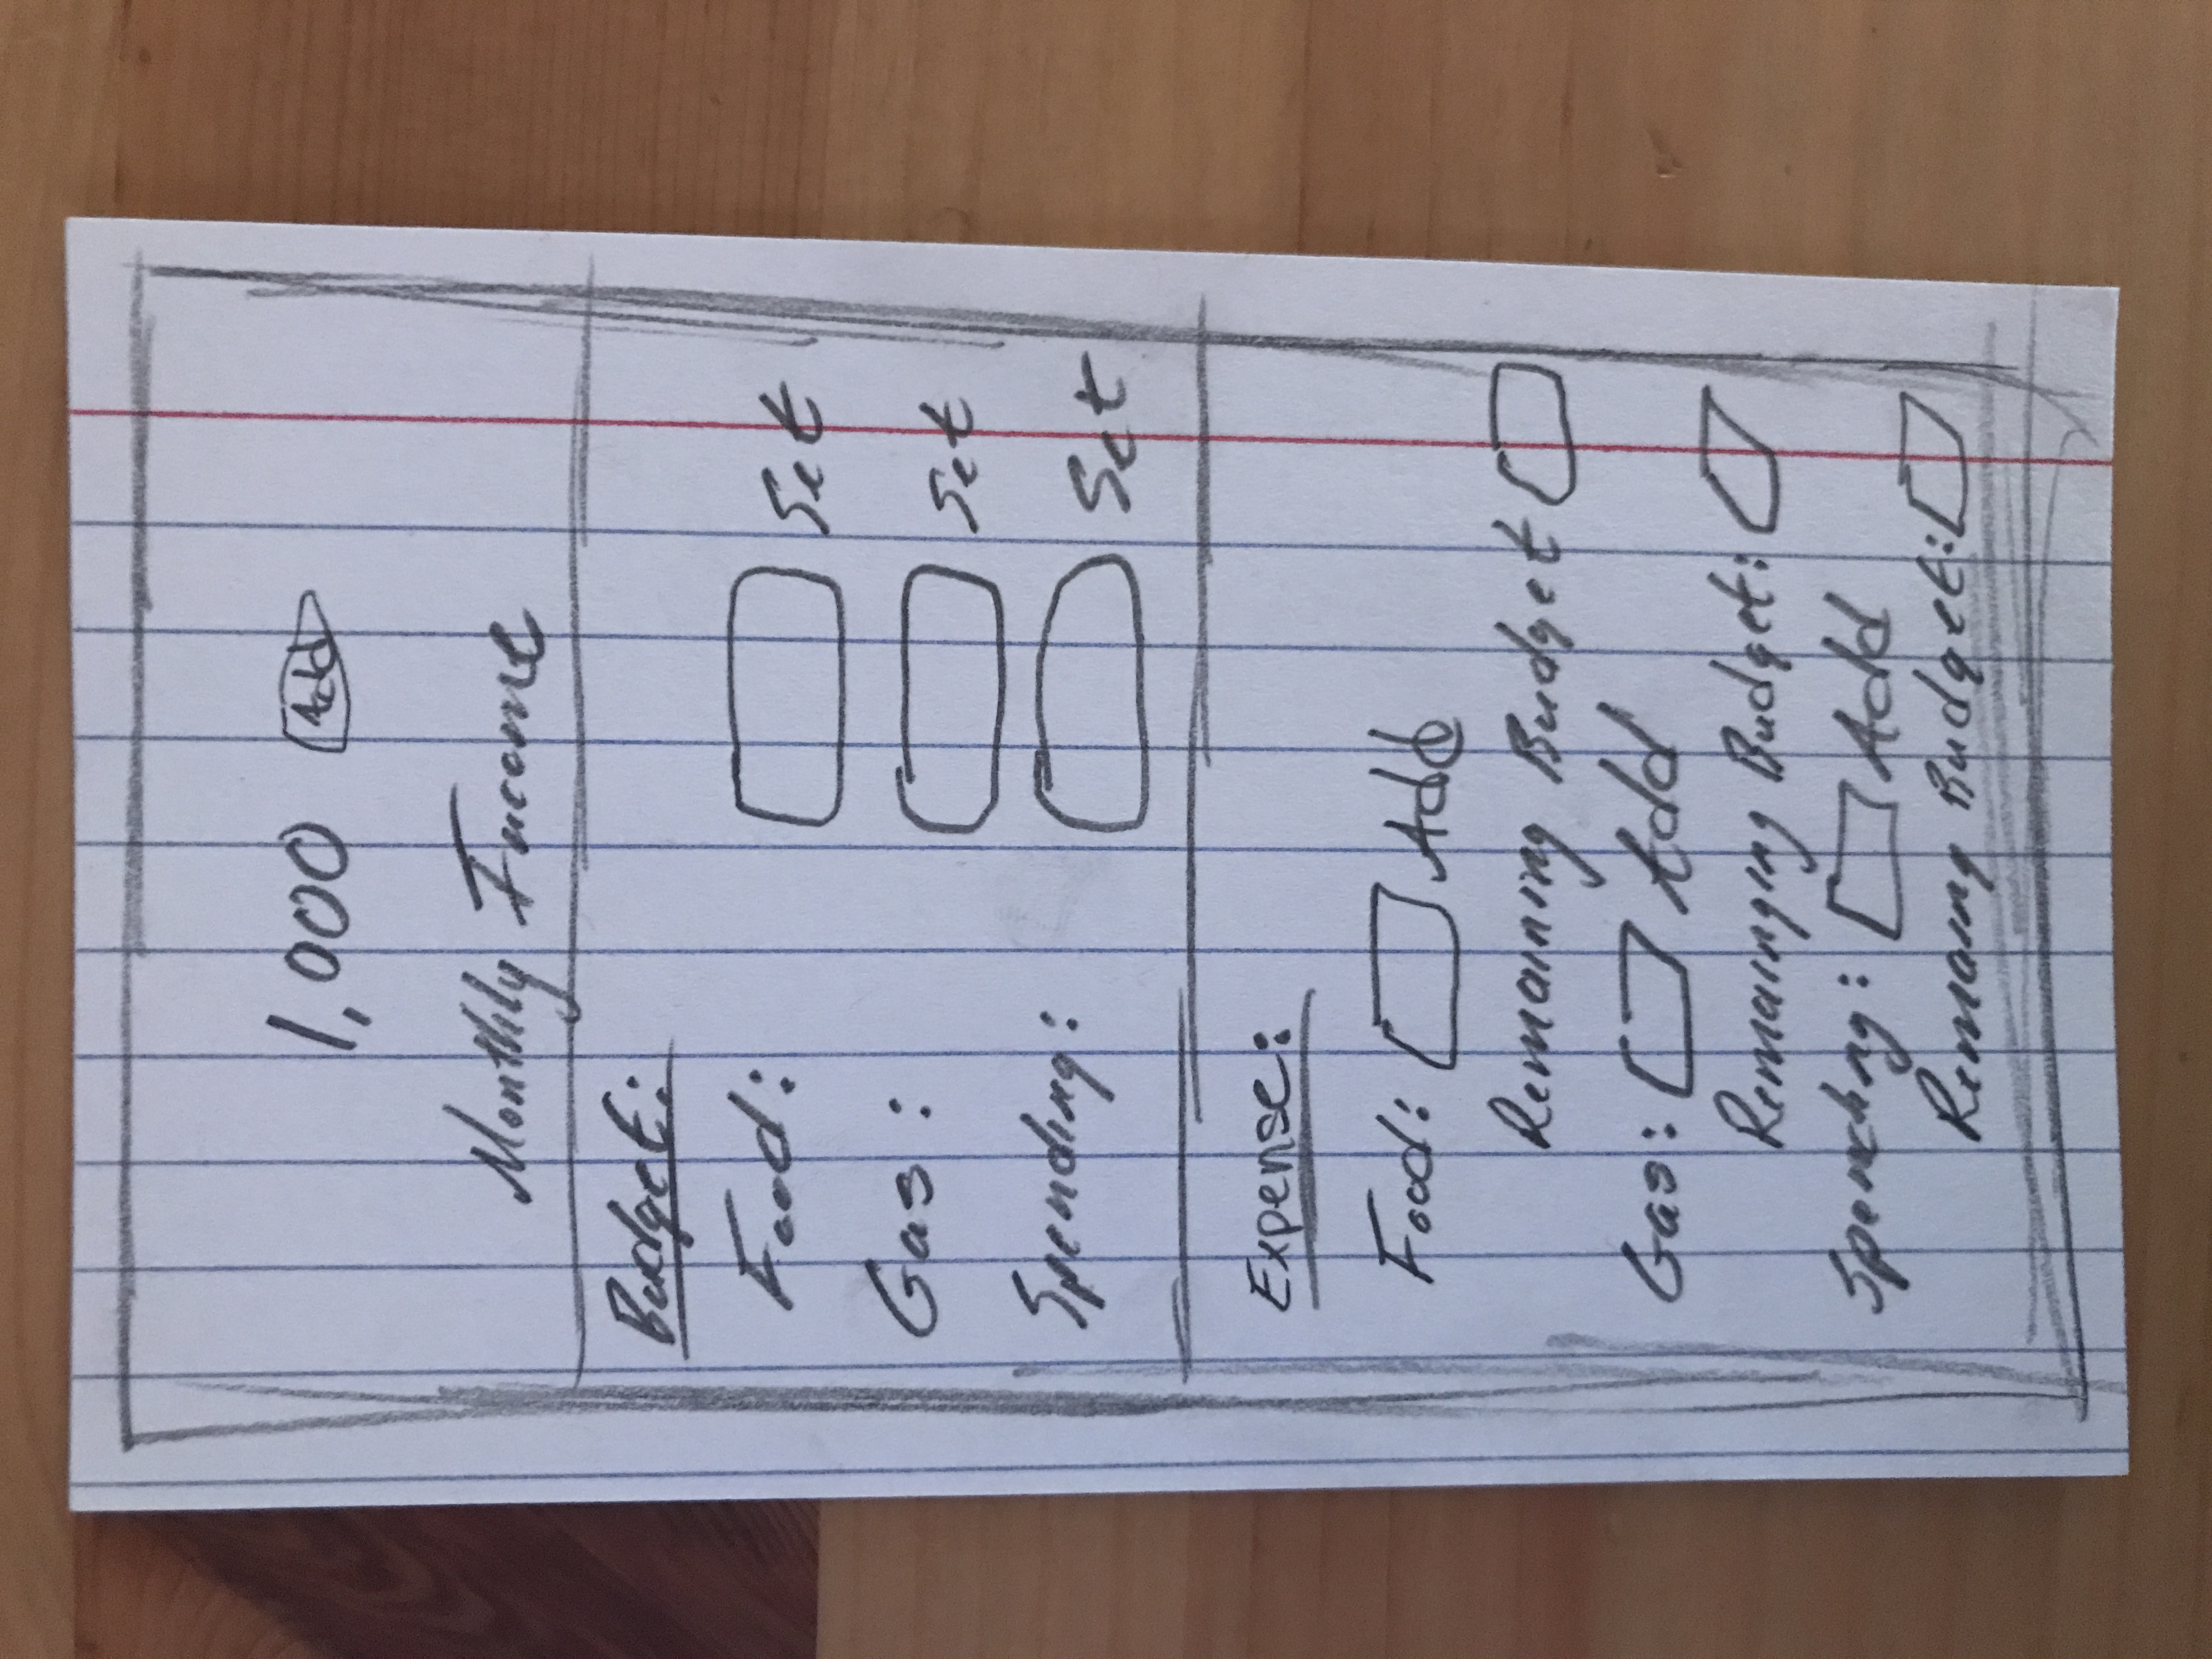 1,000 Add
Monthly Income
Budget:
Food: Set
Gas: Set
Spending: Set
Expense:
Food: Add
Remaining Budget
Gas: Add
Remainging Budget:
Spending: Add
Remaing Budget: